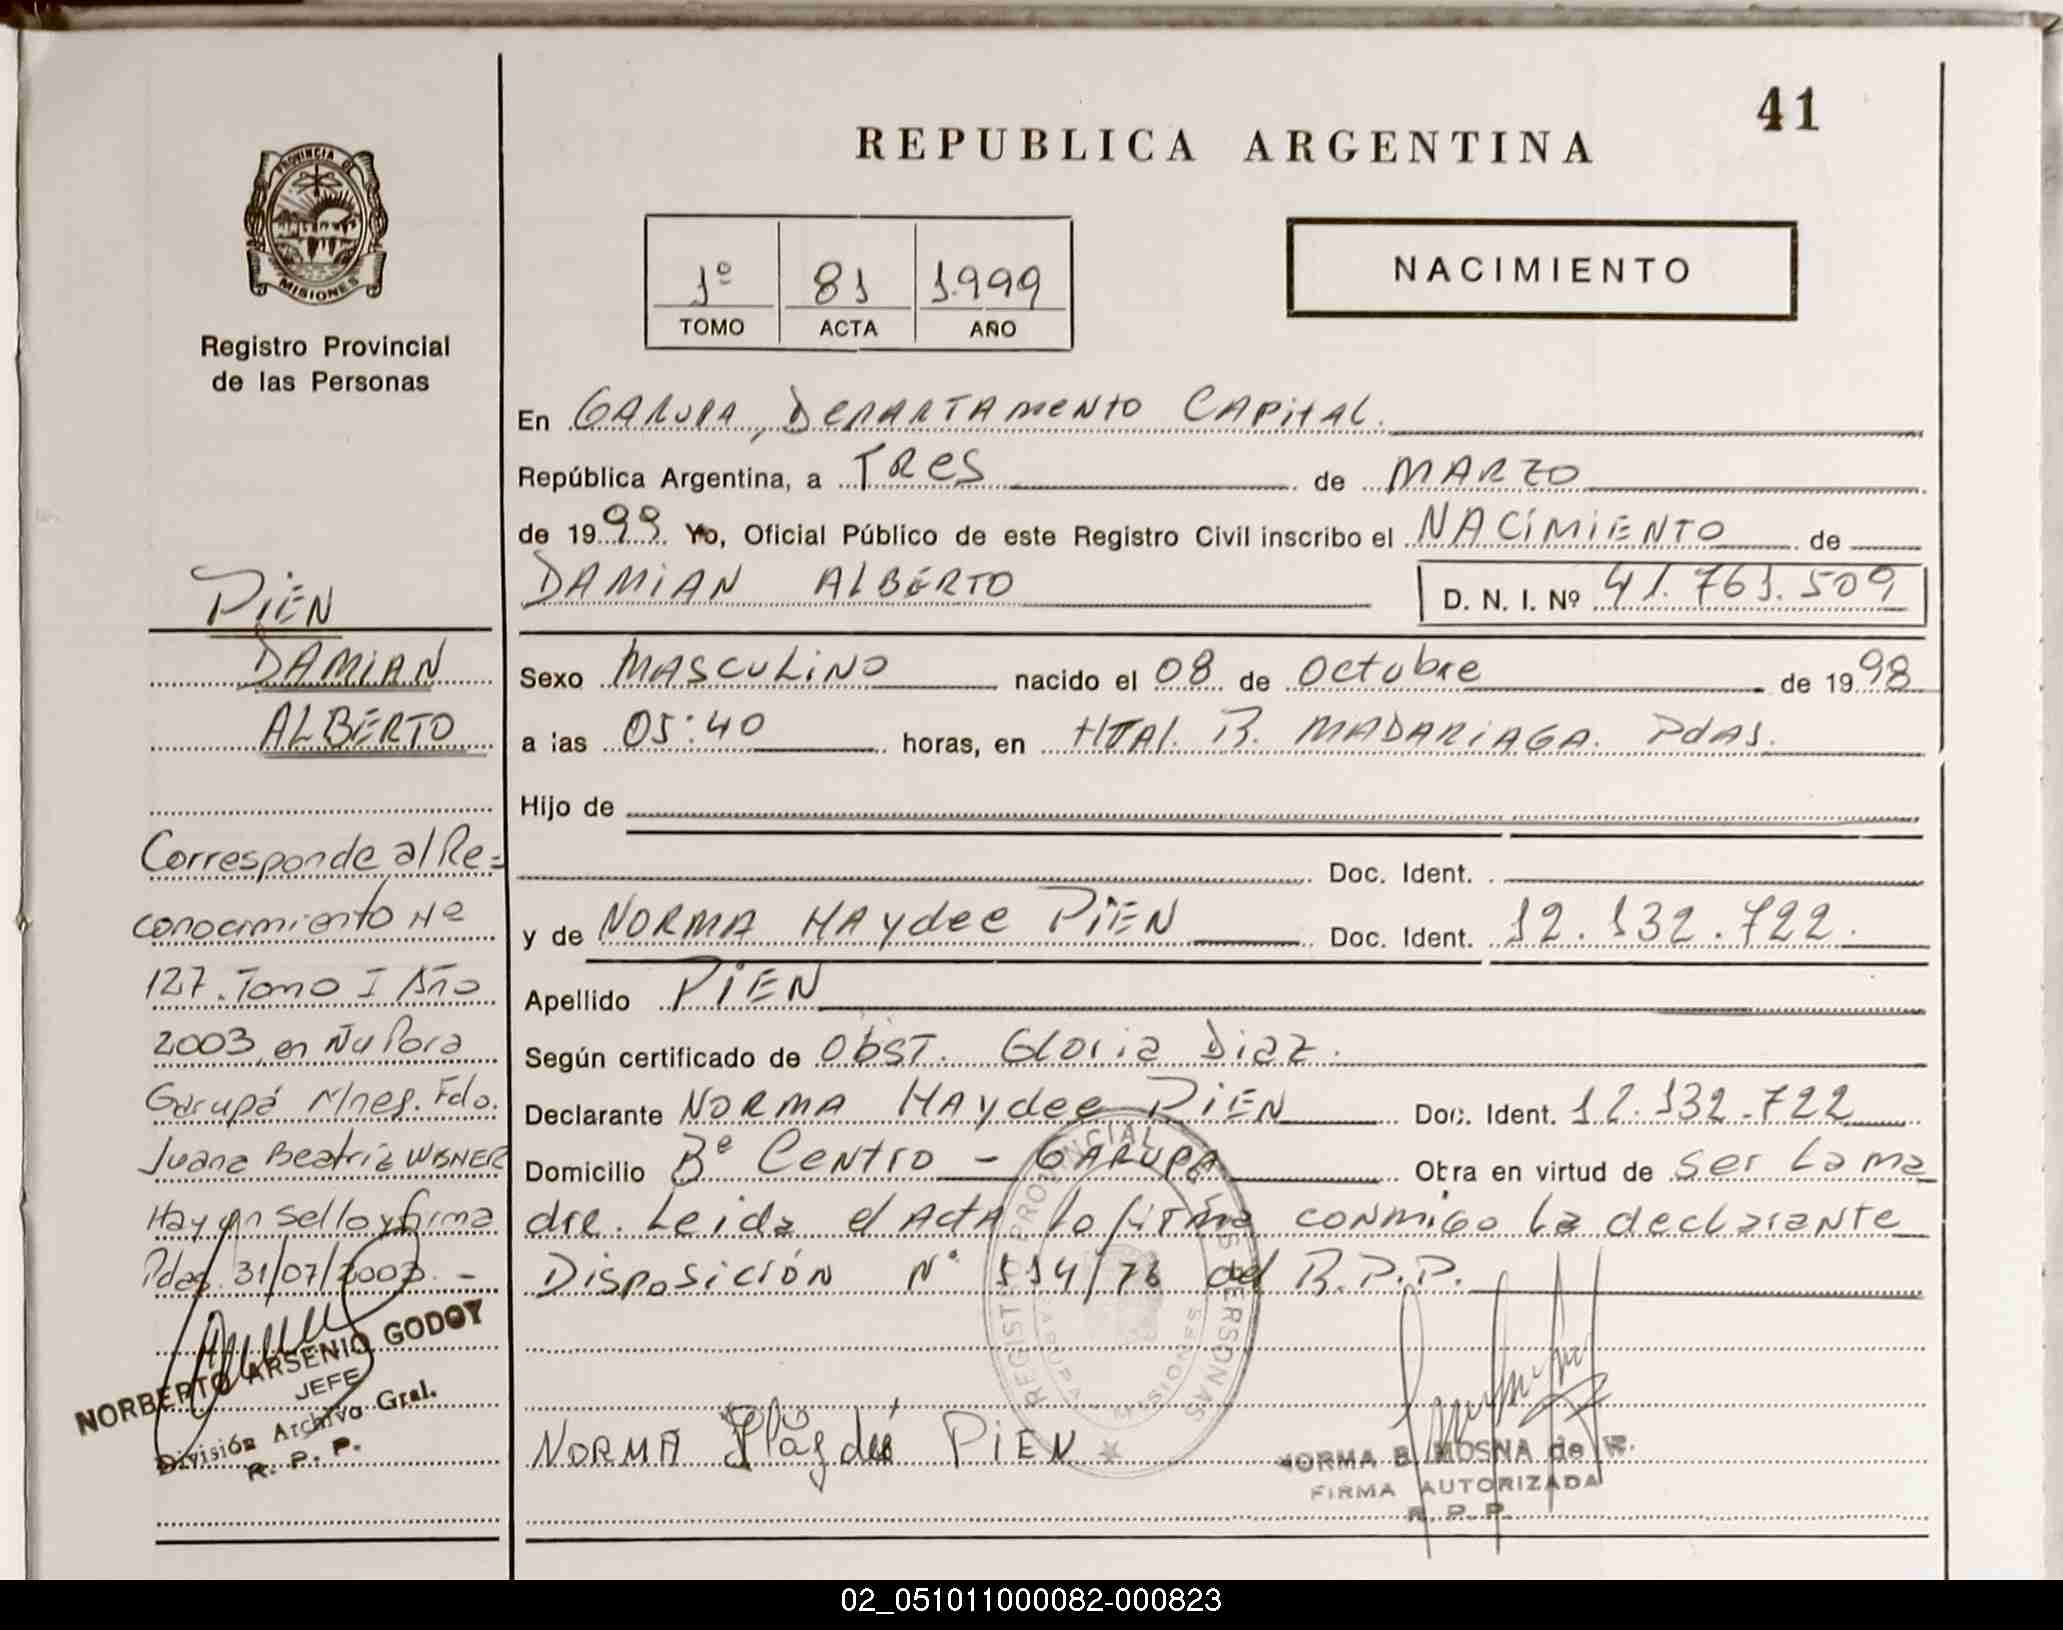 41
REPUBLICA ARGENTINA
PROVINCIA DE
MISIONES
Registro Provincial
de las Personas
1º 81 1.999
TOMO ACTA AÑO
NACIMIENTO
En GARUPA, DEPARTAMENTO CAPITAL.
República Argentina, a TRES de MARZO
de 1999 Yo, Oficial Público de este Registro Civil inscribo el NACIMIENTO de
DAMIAN ALBERTO D. N. I. Nº 41.761.509
Sexo MASCULINO nacido el 08 de octubre de 1998
a las 05:40 horas, en HTAL. R. MADARIAGA. Pdas.
Hijo de
Doc. Ident.
y de NORMA HAYDEE PIEN Doc. Ident. 12.132.722.
Apellido PIEN
Según certificado de Obst. Gloria Diaz.
Declarante NORMA HAYDEE PIEN Doc. Ident. 12.132.722
Domicilio Bº CENTRO - GARUPA Obra en virtud de ser la ma
dre. Leida el ACTA la firma conmigo la declarante
Disposición Nº 114/76 del R.P.P.
NORMA Haydeé PIEN
REGISTRO PROVINCIAL DE LAS PERSONAS
GARUPA - MISIONES
NORMA B. MOSNA de R.
FIRMA AUTORIZADA
R. P. P.
PIEN
DAMIAN
ALBERTO
Corresponde al Re=
conocimiento Nº
127. Tomo I Año
2003, en Ñu Pora
Garupá Mnes. Fdo.
Juana Beatriz
Hay un sello y firma
Pdas. 31/07/2003. -
NORBERTO ARSENIO GODOY
JEFE
División Archivo Gral.
R. P. P.
02_051011000082-000823